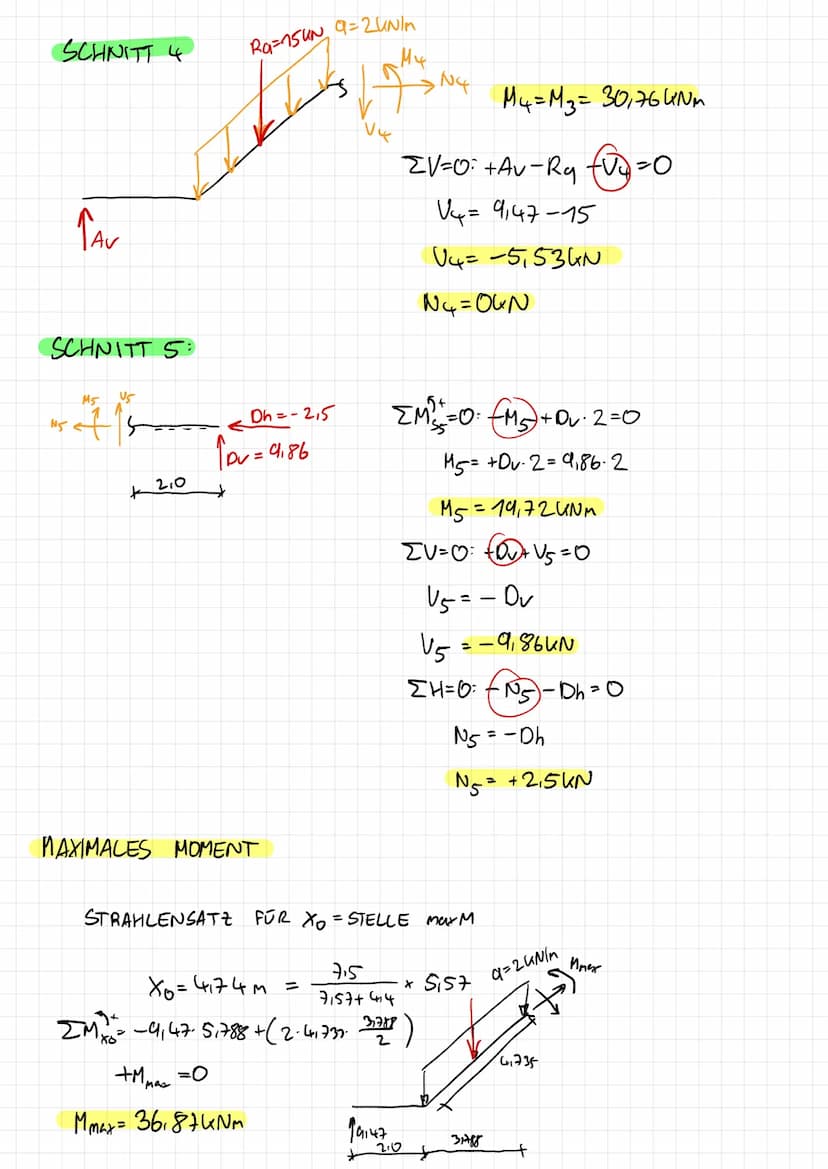 SCHNITT 4
Rq=15kN
q=2kN/m
M4
N4
V4
Av
M4=M3= 30,76kNm
ΣV=0: +Av-Rq-V4=0
V4= 9,47-15
V4= -5,53kN
N4=0kN
SCHNITT 5:
M5
V5
N5
Dh=-2,5
Dv=9,86
2,0
ΣMS5=0: -M5+Dv·2=0
M5= +Dv·2=9,86·2
M5=19,72kNm
ΣV=0: +Dv+V5=0
V5= - Dv
V5 = -9,86kN
ΣH=0: -N5-Dh=0
N5 = -Dh
N5= +2,5kN
MAXIMALES MOMENT
STRAHLENSATZ FÜR x0=STELLE maxM
x0=4,74m = 7,5 / 7,57+4,4 * 5,57
ΣMx0= -9,47·5,788+(2·4,735·3,788/2)
+Mmax=0
Mmax= 36,87kNm
q=2kN/m
Mmax
4,735
9,47
2,0
3,788